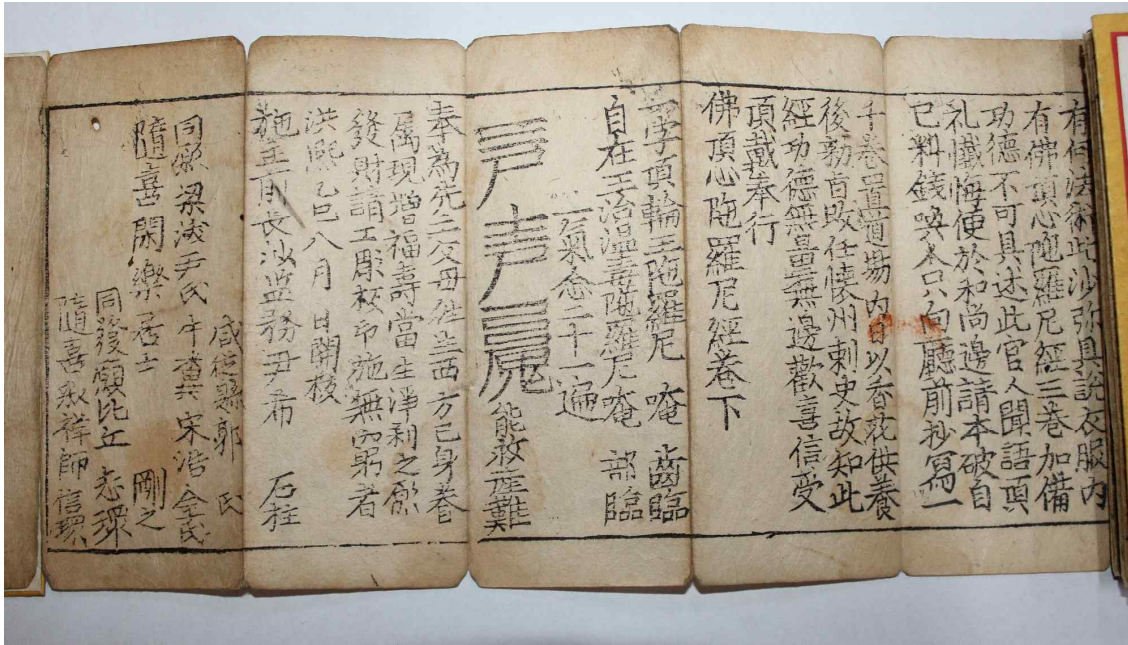 有何法術此沙弥具說衣服内
有佛頂心陁羅尼經三巻加備
功德不可具述此官人聞語頂
礼懴悔便於和尚邊請本破自
已料錢喚人只向廳前抄冩一
千卷置道塲内日以香花供養
後勑旨改任懐州刺史故知此
經功德無量無邊歡喜信受
頂戴奉行
佛頂心陁羅尼經巻下
一字頂輪王陁羅尼 唵 齒臨
自在王治温毒陁羅尼唵 部臨
一氣念二十一遍
能救産難
奉為先亡父母往生西方己身眷
属現増福壽當生淨刹之願
發財請工彫板印施無窮者
洪熙乙巳八月 日開板
施主前長沙監務尹希 石柱
咸從縣郭 氏
同願梁洪 尹氏 宋浩 金氏
隨喜閑樂居士 剛之
同發願比丘 志環
隨喜 祥師信環